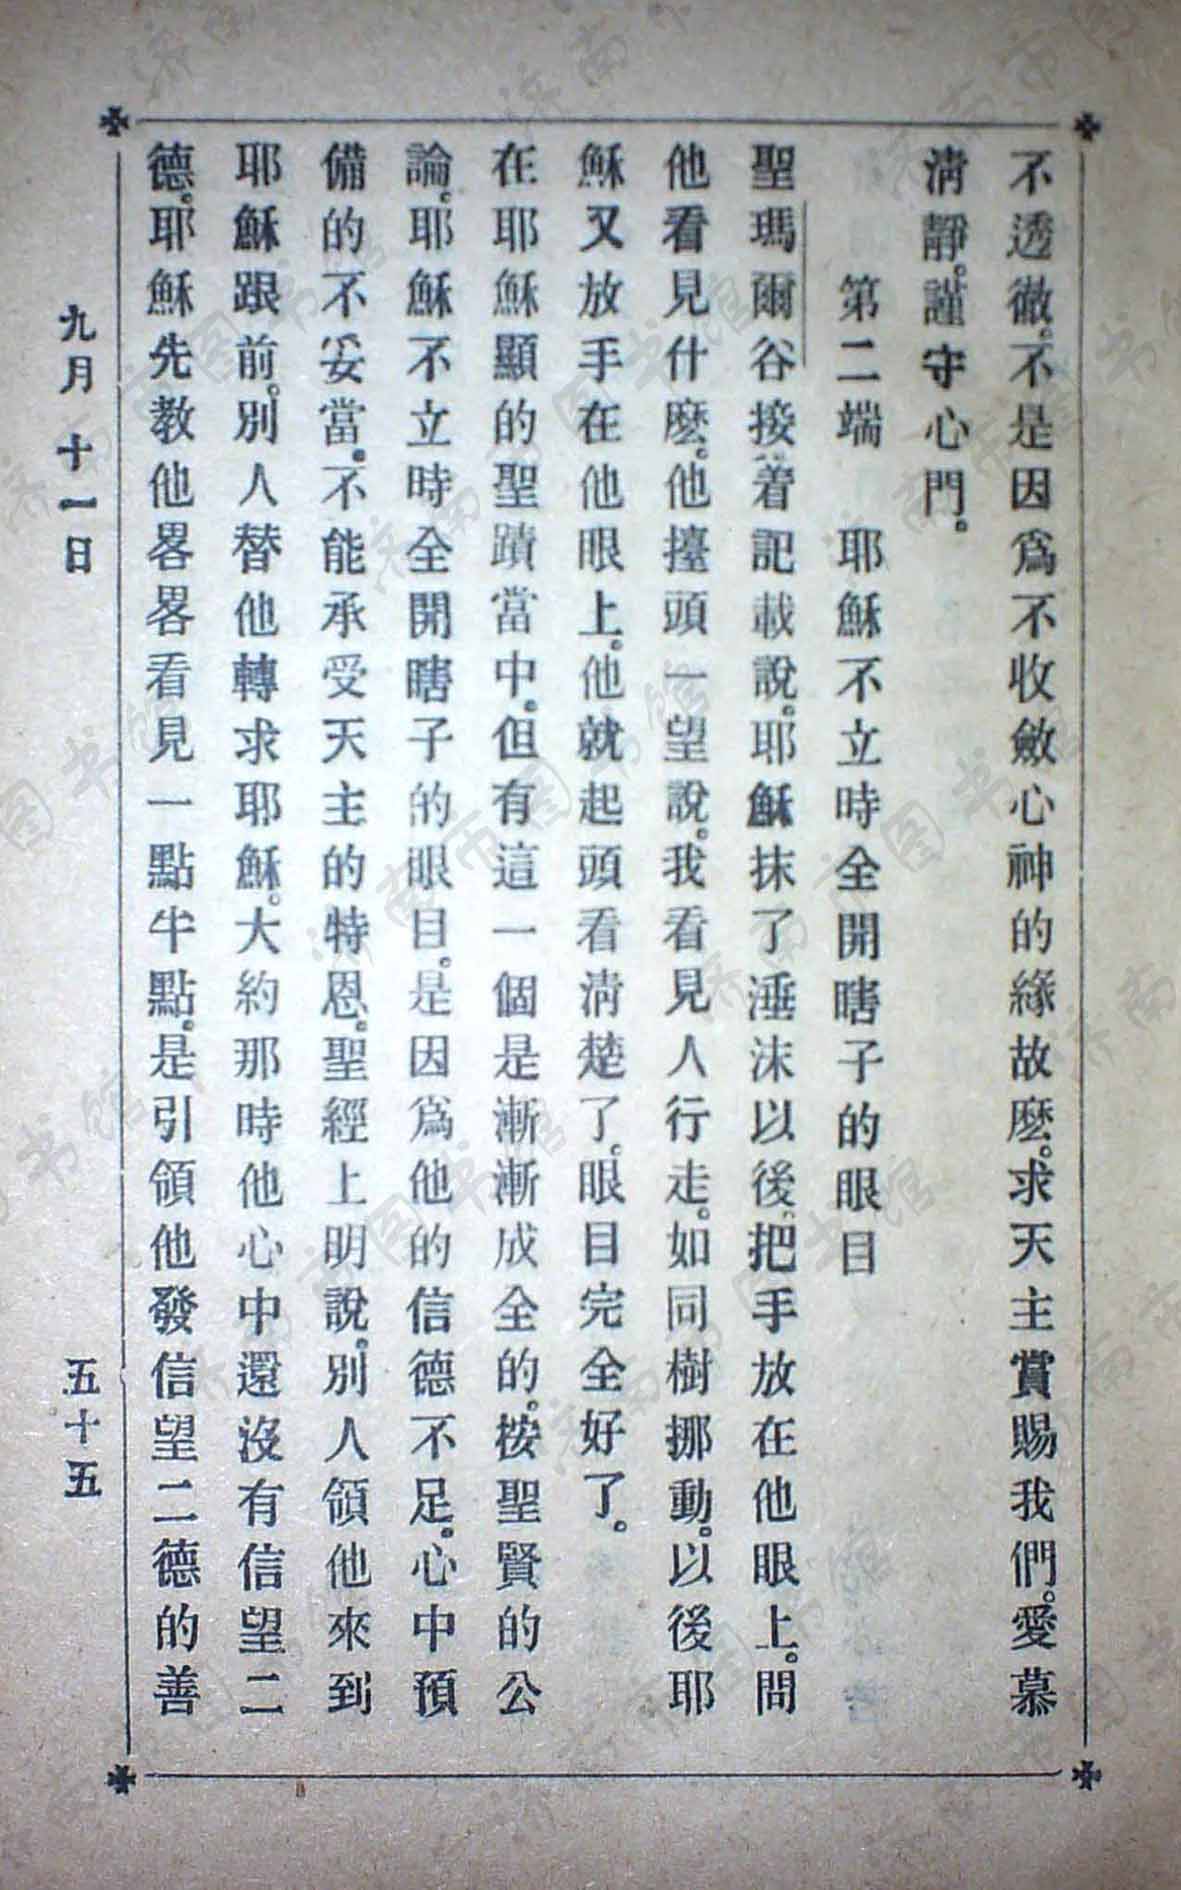 不透徹。不是因爲不收斂心神的緣故麽。求天主賞賜我們。愛慕
淸靜。謹守心門。
第二端　耶穌不立時全開瞎子的眼目
聖瑪爾谷接着記載說。耶穌抹了涶沫以後。把手放在他眼上。問
他看見什麽。他擡頭一望說。我看見人行走。如同樹挪動。以後耶
穌又放手在他眼上。他就起頭看淸楚了。眼目完全好了。
在耶穌顯的聖蹟當中。但有這一個是漸漸成全的。按聖賢的公
論。耶穌不立時全開瞎子的眼目。是因爲他的信德不足。心中預
備的不妥當。不能承受天主的特恩。聖經上明說。別人領他來到
耶穌跟前。別人替他轉求耶穌。大約那時他心中還沒有信望二
德。耶穌先教他畧畧看見一點半點。是引領他發信望二德的善
九月十一日
五十五
济南市图书馆